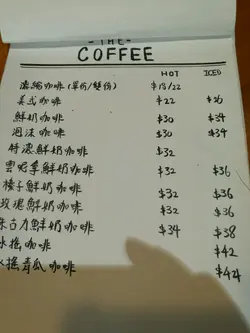 -THE-
COFFEE
HOT ICED
濃縮咖啡(單份/雙份) $18/22
美式咖啡 $22 $26
鮮奶咖啡 $30 $34
泡沫咖啡 $30 $34
特濃鮮奶咖啡 $32
雲呢拿鮮奶咖啡 $32 $36
榛子鮮奶咖啡 $32 $36
玫瑰鮮奶咖啡 $32 $36
朱古力鮮奶咖啡 $34 $38
冰搖咖啡 $42
冰搖青瓜咖啡 $44